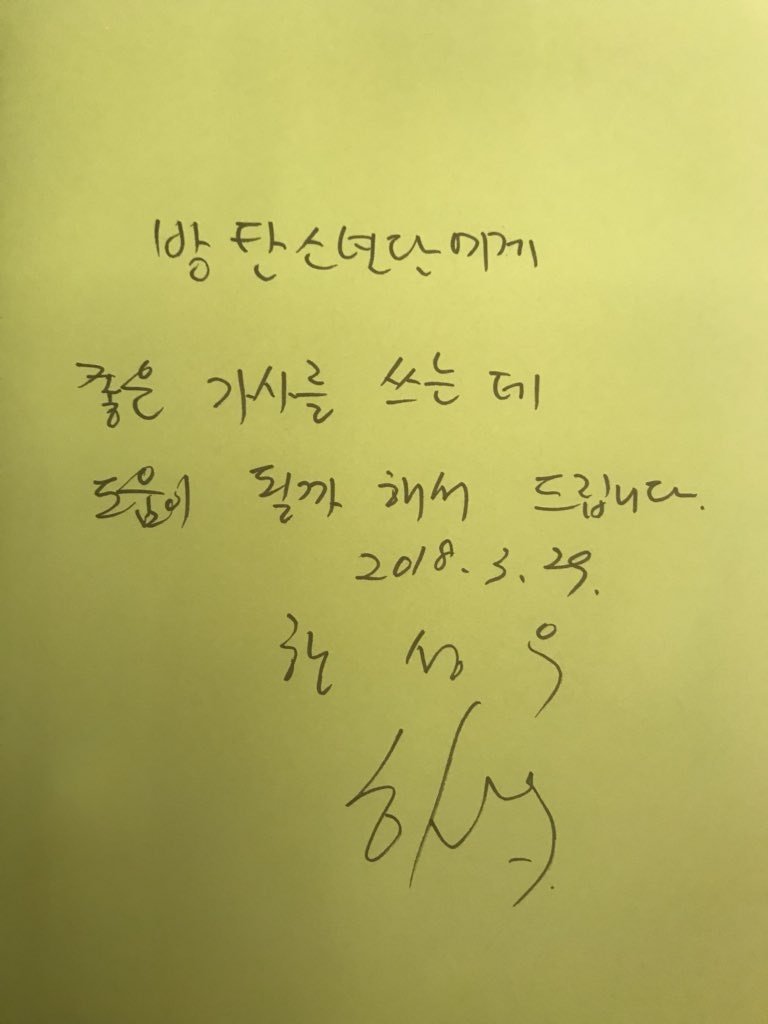 방탄소년단에게
좋은 가사를 쓰는 데
도움이 될까 해서 드립니다.
2018. 3. 29.
한 성 우